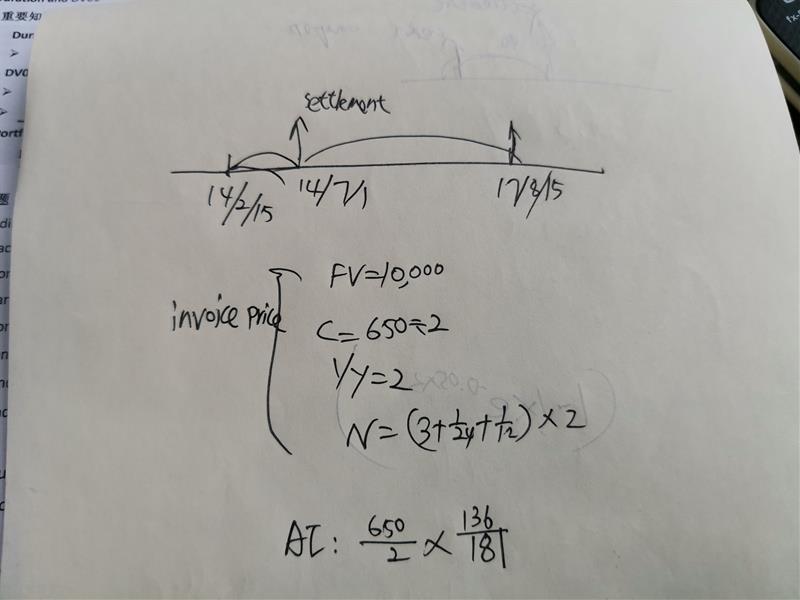 重要知
Dur
DV0
Portf
settlement
14/2/15
14/7/1
17/8/15
invoice price
FV=10,000
C=650÷2
1/Y=2
N=(3+1/24+1/12)×2
AI: 650/2 × 136/181